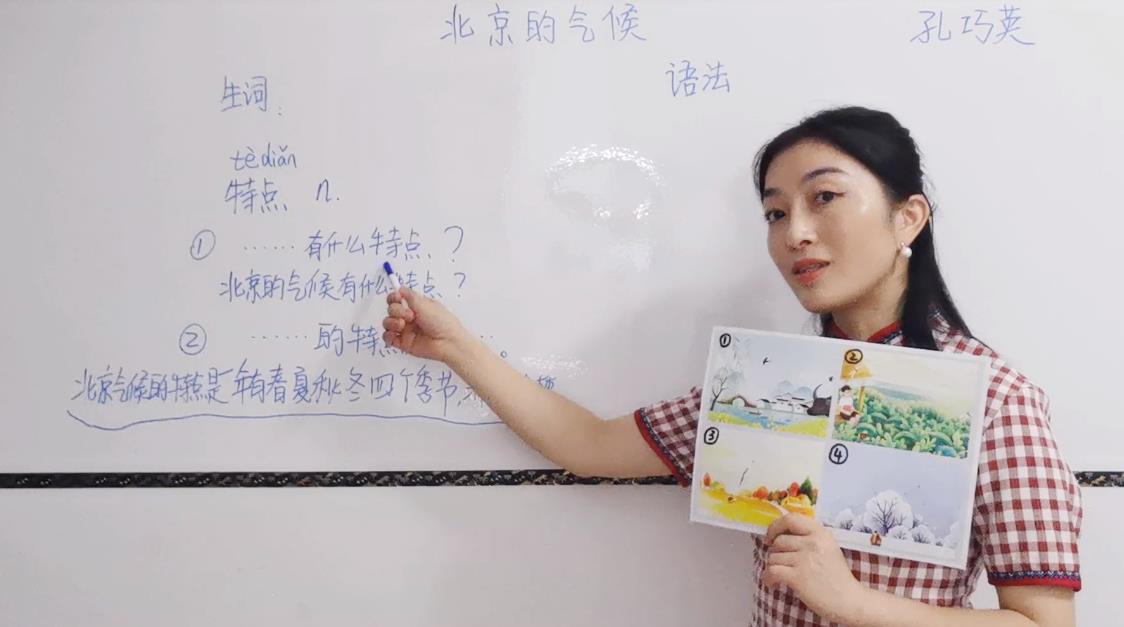 北京的气候
孔巧英
语法
生词:
tèdiǎn
特点 n.
① ……有什么特点?
北京的气候有什么特点?
② ……的特点 …。
北京气候的特点是一年有春夏秋冬四个季节,
①
②
③
④